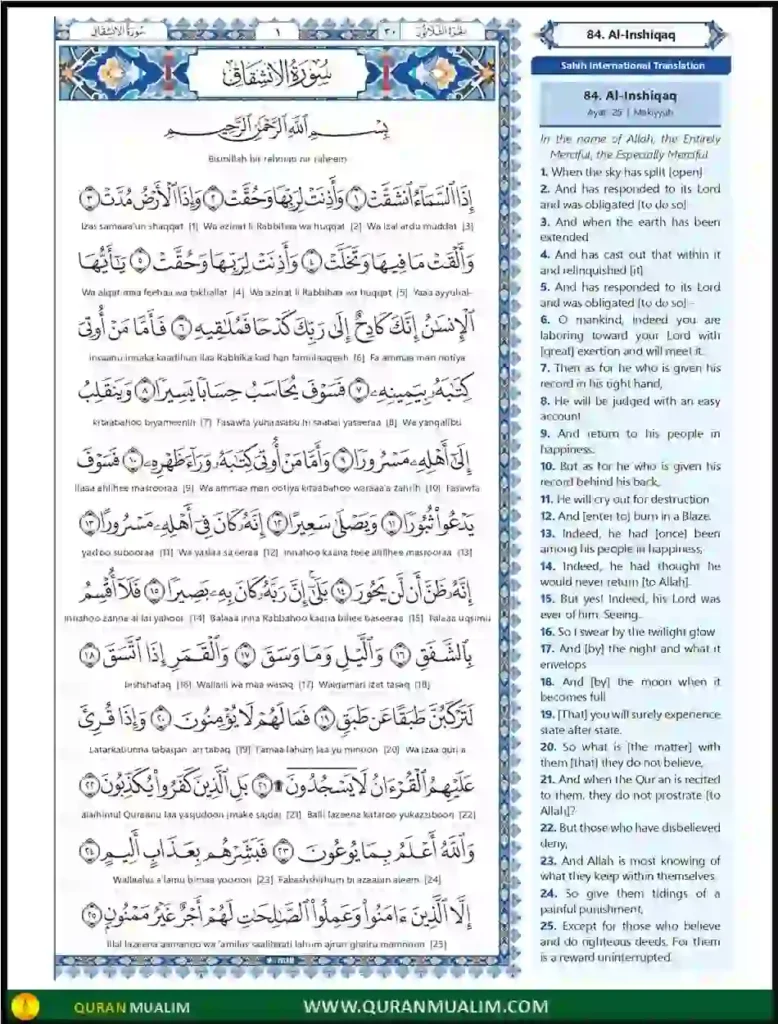 سورة الانشقاق
١
٣٠
الجزء الثلاثون
سُورَةُ الانشِقَاقِ
بِسْمِ اللَّهِ الرَّحْمَٰنِ الرَّحِيمِ
Bismillah hir rahman nir raheem
إِذَا السَّمَاءُ انشَقَّتْ ١ وَأَذِنَتْ لِرَبِّهَا وَحُقَّتْ ٢ وَإِذَا الْأَرْضُ مُدَّتْ ٣
Izas samaaa'un shaqqat [1] Wa azinat li Rabbihaa wa huqqat [2] Wa izal ardu muddat [3]
وَأَلْقَتْ مَا فِيهَا وَتَخَلَّتْ ٤ وَأَذِنَتْ لِرَبِّهَا وَحُقَّتْ ٥ يَا أَيُّهَا
Wa alqat maa feehaa wa takhallat [4] Wa azinat li Rabbihaa wa huqqat [5] Yaaa ayyuhal-
الْإِنسَانُ إِنَّكَ كَادِحٌ إِلَىٰ رَبِّكَ كَدْحًا فَمُلَاقِيهِ ٦ فَأَمَّا مَنْ أُوتِيَ
insaanu innaka kaadihun ilaa Rabbika kad han famulaaqeeh [6] Fa ammaa man ootiya
كِتَابَهُ بِيَمِينِهِ ٧ فَسَوْفَ يُحَاسَبُ حِسَابًا يَسِيرًا ٨ وَيَنقَلِبُ
kitaabahoo biyameenih [7] Fasawfa yuhaasabu hi saabai yaseeraa [8] Wa yanqalibu
إِلَىٰ أَهْلِهِ مَسْرُورًا ٩ وَأَمَّا مَنْ أُوتِيَ كِتَابَهُ وَرَاءَ ظَهْرِهِ ١٠ فَسَوْفَ
ilaaa ahlihee masrooraa [9] Wa ammaa man ootiya kitaabahoo waraaa'a zahrih [10] Fasawfa
يَدْعُو ثُبُورًا ١١ وَيَصْلَىٰ سَعِيرًا ١٢ إِنَّهُ كَانَ فِي أَهْلِهِ مَسْرُورًا ١٣
yad'oo subooraa [11] Wa yaslaa sa'eeraa [12] Innahoo kaana feee ahlihee masrooraa [13]
إِنَّهُ ظَنَّ أَن لَّن يَحُورَ ١٤ بَلَىٰ إِنَّ رَبَّهُ كَانَ بِهِ بَصِيرًا ١٥ فَلَا أُقْسِمُ
Innahoo zanna ai lai yahoor [14] Balaaa inna Rabbahoo kaana bihee baseeraa [15] Falaaa uqsimu
بِالشَّفَقِ ١٦ وَاللَّيْلِ وَمَا وَسَقَ ١٧ وَالْقَمَرِ إِذَا اتَّسَقَ ١٨
bishshafaq [16] Wallaili wa maa wasaq [17] Walqamari izat tasaq [18]
لَتَرْكَبُنَّ طَبَقًا عَن طَبَقٍ ١٩ فَمَا لَهُمْ لَا يُؤْمِنُونَ ٢٠ وَإِذَا قُرِئَ
Latarkabunna tabaqan 'an tabaq [19] Famaa lahum laa yu'minoon [20] Wa izaa quri'a
عَلَيْهِمُ الْقُرْآنُ لَا يَسْجُدُونَ ۩ ٢١ بَلِ الَّذِينَ كَفَرُوا يُكَذِّبُونَ ٢٢
alaihimul Quraanu laa yasjudoon [make sajda] [21] Balil lazeena kafaroo yukazziboon [22]
وَاللَّهُ أَعْلَمُ بِمَا يُوعُونَ ٢٣ فَبَشِّرْهُم بِعَذَابٍ أَلِيمٍ ٢٤
Wallaahu a'lamu bimaa yoo'oon [23] Fabashshirhum bi'azaabin aleem [24]
إِلَّا الَّذِينَ آمَنُوا وَعَمِلُوا الصَّالِحَاتِ لَهُمْ أَجْرٌ غَيْرُ مَمْنُونٍ ٢٥
Illal lazeena aamanoo wa 'amilus saalihaati lahum ajrun ghairu mamnoon [25]
84. Al-Inshiqaq
Sahih International Translation
84. Al-Inshiqaq
Ayat 25 | Makiyyah
In the name of Allah, the Entirely
Merciful, the Especially Merciful
1. When the sky has split [open]
2. And has responded to its Lord
and was obligated [to do so]
3. And when the earth has been
extended
4. And has cast out that within it
and relinquished [it]
5. And has responded to its Lord
and was obligated [to do so] -
6. O mankind, indeed you are
laboring toward your Lord with
[great] exertion and will meet it.
7. Then as for he who is given his
record in his right hand,
8. He will be judged with an easy
account
9. And return to his people in
happiness.
10. But as for he who is given his
record behind his back,
11. He will cry out for destruction
12. And [enter to] burn in a Blaze.
13. Indeed, he had [once] been
among his people in happiness;
14. Indeed, he had thought he
would never return [to Allah].
15. But yes! Indeed, his Lord was
ever of him, Seeing.
16. So I swear by the twilight glow
17. And [by] the night and what it
envelops
18. And [by] the moon when it
becomes full
19. [That] you will surely experience
state after state.
20. So what is [the matter] with
them [that] they do not believe,
21. And when the Qur'an is recited
to them, they do not prostrate [to
Allah]?
22. But those who have disbelieved
deny,
23. And Allah is most knowing of
what they keep within themselves.
24. So give them tidings of a
painful punishment,
25. Except for those who believe
and do righteous deeds. For them
is a reward uninterrupted.
QURAN MUALIM
WWW.QURANMUALIM.COM